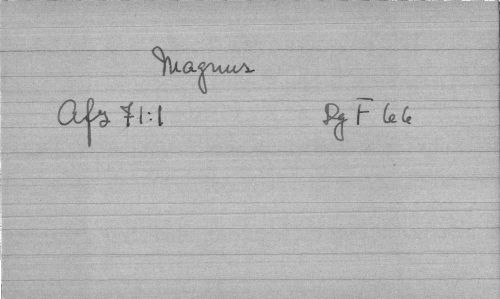 Magnus
Afz 71:1 Dg F 66